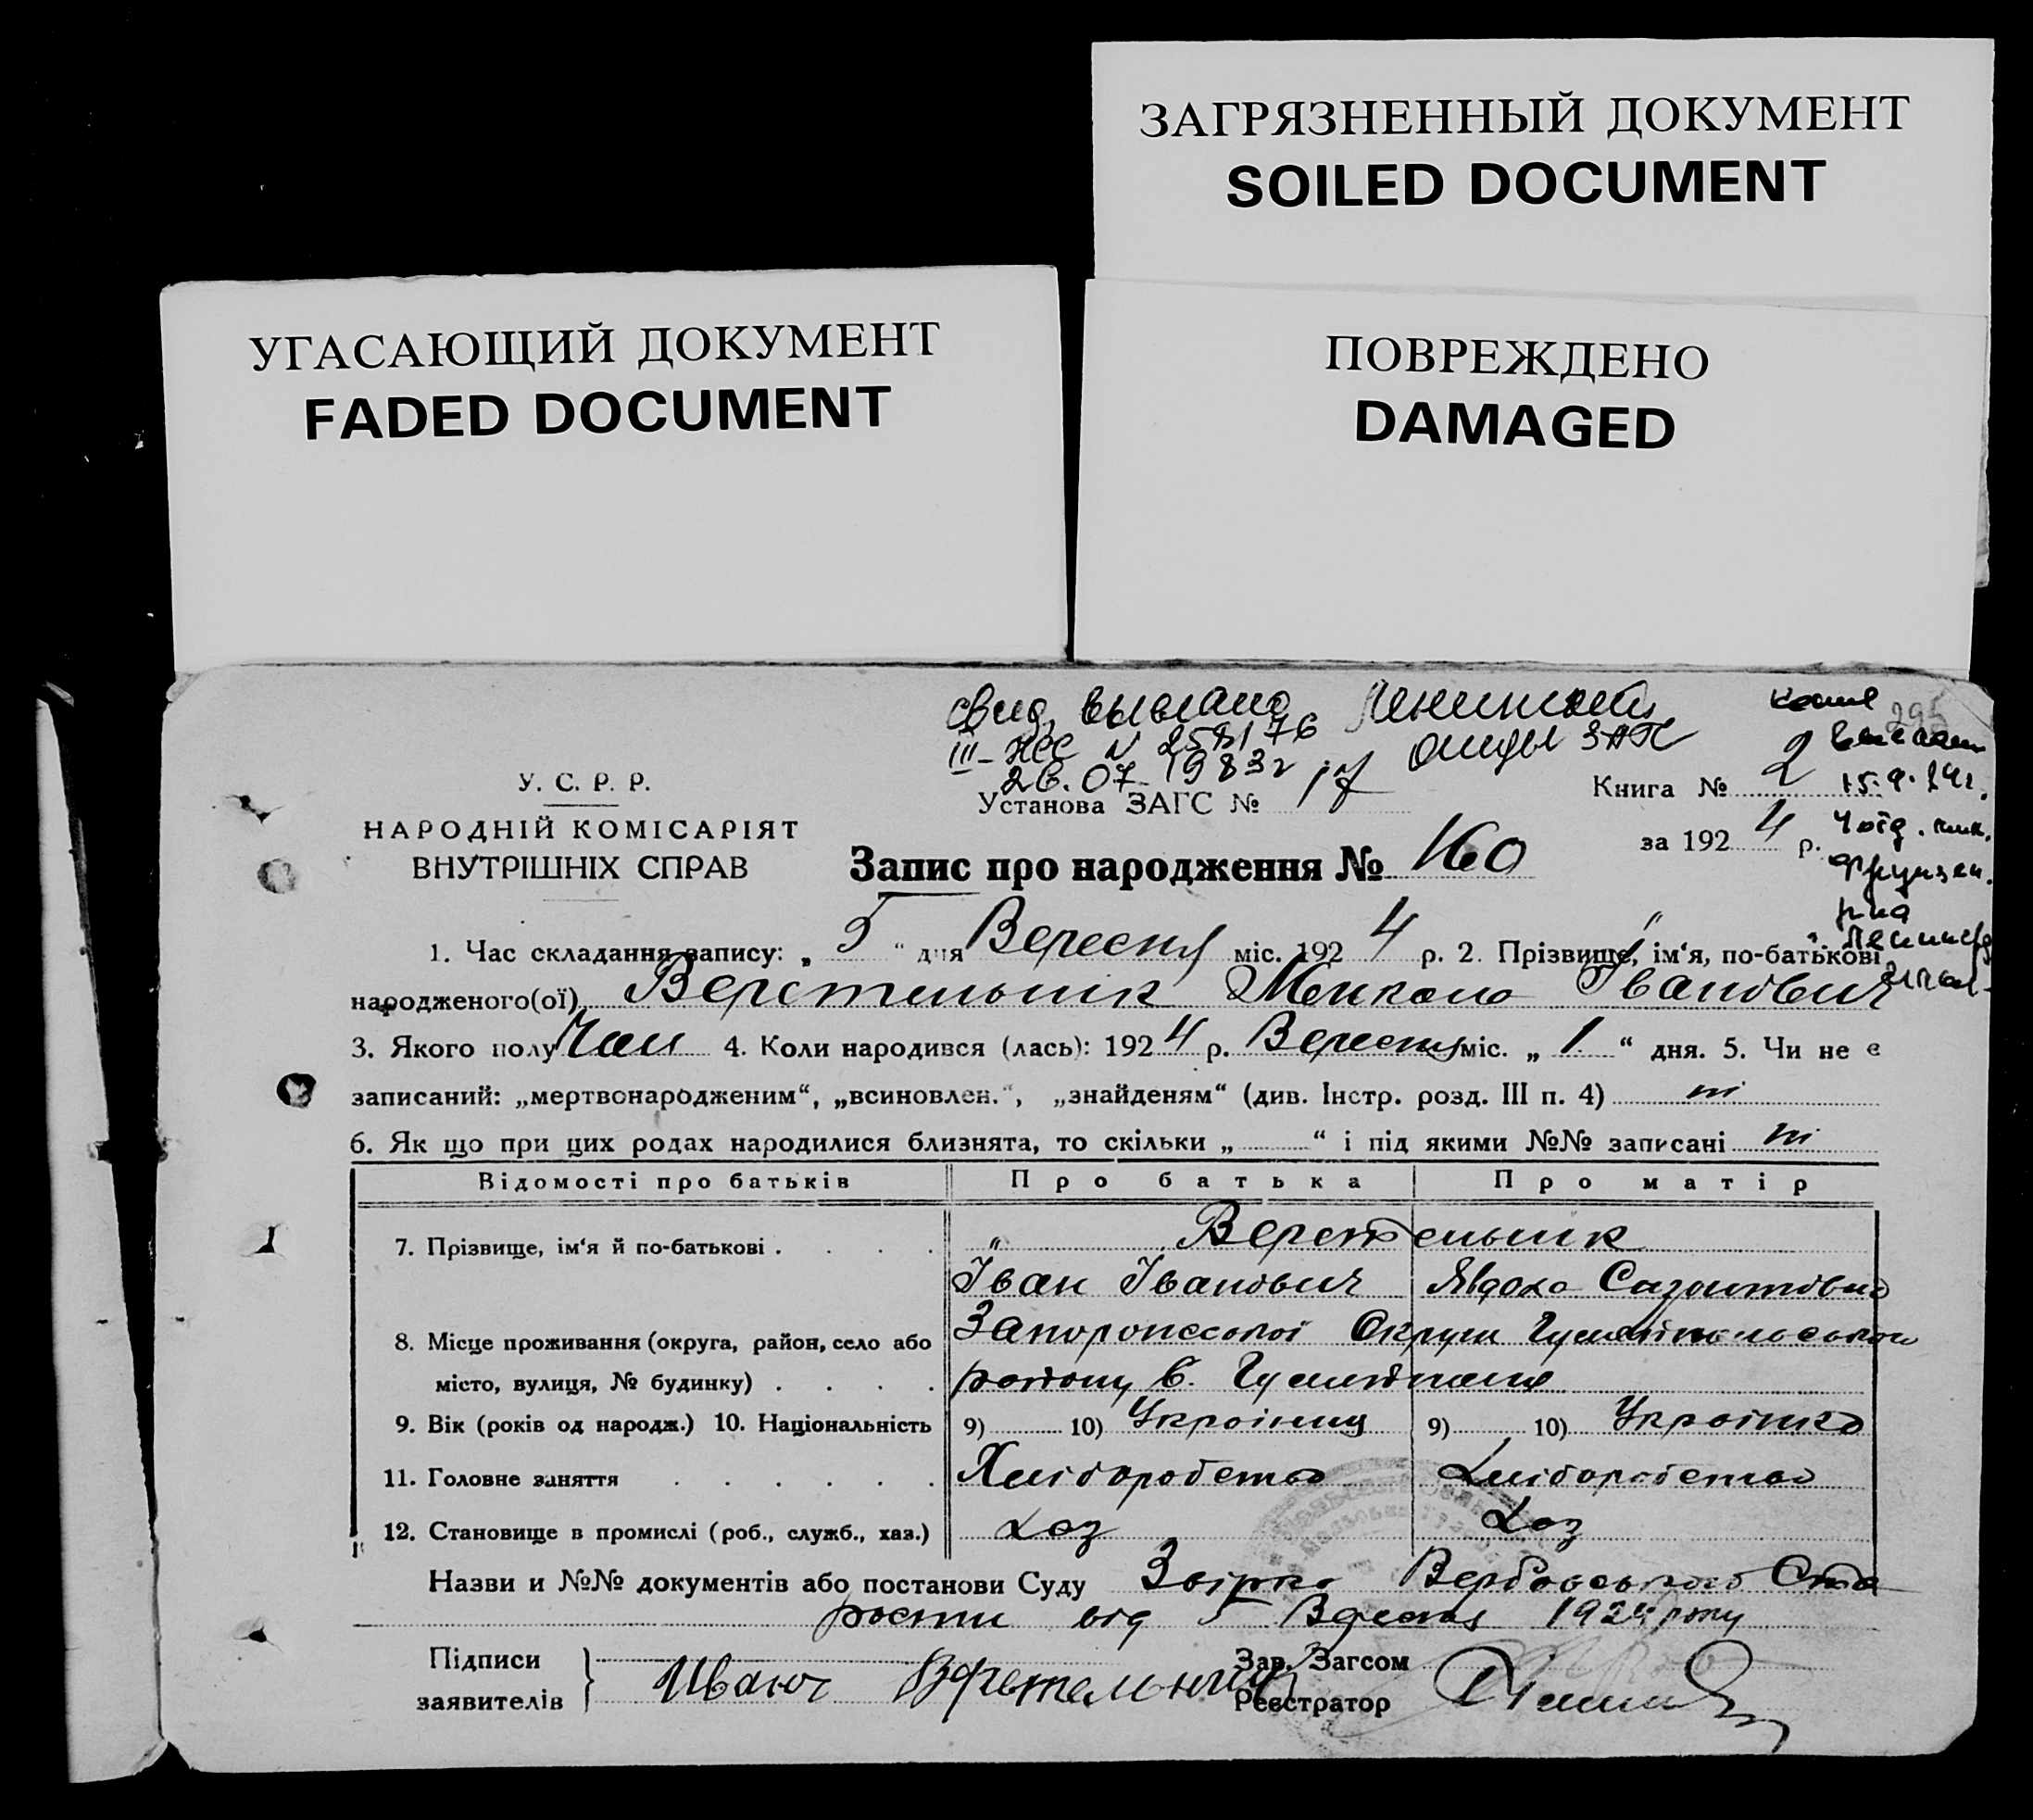 ЗАГРЯЗНЕННЫЙ ДОКУМЕНТ
SOILED DOCUMENT
УГАСАЮЩИЙ ДОКУМЕНТ
FADED DOCUMENT
ПОВРЕЖДЕНО
DAMAGED
295
свид, выслано
III-ЖС N 258176
26.07 1983г
ЗАГС
15.9.
У. С. Р. Р.
НАРОДНІЙ КОМІСАРІЯТ
ВНУТРІШНІХ СПРАВ
Установа ЗАГС № 17
Книга № 2
за 1924 р.
Запис про народження № 160
1. Час складання запису: „ 5 “ дня Вересня міс. 1924 р. 2. Прізвище, ім‘я, по-батькові
народженого(ої) Веретельник Микола Іванович
3. Якого полу Чол 4. Коли народився (лась): 1924 р. Вересня міс. „ 1 “ дня. 5. Чи не є
записаний: „мертвонародженим“, „всиновлен.“, „знайденям“ (див. Інстр. розд. III п. 4) ні
6. Як що при цих родах народилися близнята, то скільки „ “ і під якими №№ записані ні
Відомості про батьків Про батька Про матір
7. Прізвище, ім‘я й по-батькові . . . . Веретельник
Іван Іванович Явдоха
8. Місце проживання (округа, район, село або Запорожської Округи
місто, вулиця, № будинку) . . . . району с.
9. Вік (років од народж.) 10. Національність 9) 10) Українец 9) 10) Українка
11. Головне заняття . . . . . . Хліборобство Хліборобство
12. Становище в промислі (роб., служб., хаз.) Хаз Хаз
Назви и №№ документів або постанови Суду Звірка Вербовського Ста
рости від 5 Вересня 1924 року
Підписи
заявителів Иван Веретельник
Зав. Загсом
Реєстратор